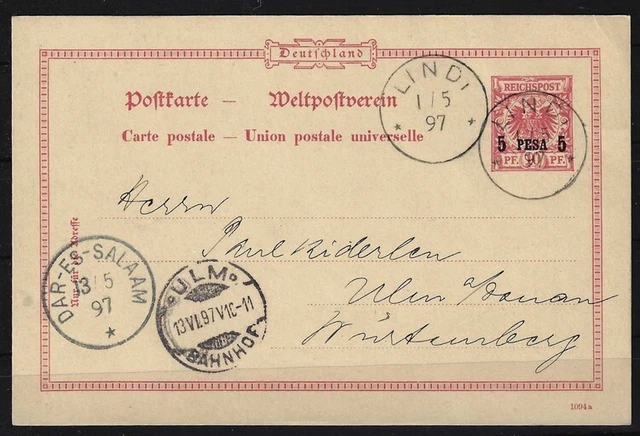 Deutschland
Postkarte — Weltpostverein
Carte postale — Union postale universelle
LINDI
1/5
97
REICHSPOST
5 PESA 5
PF. 10 PF.
LINDI
1/5
97
Nur für die Adresse
Herrn
Paul Kiderlen
Ulm a/Donau
Württemberg
DAR-ES-SALAAM
3/5
97
ULM
13 VI.97 V10-11
BAHNHOF
1094a